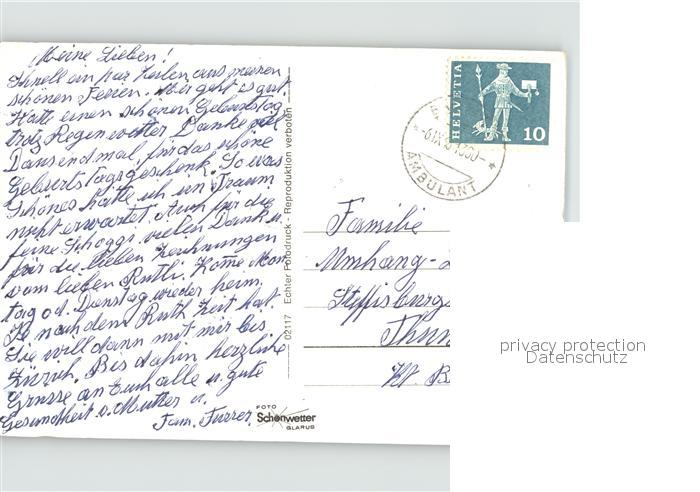 Meine Lieben!
Schnell ein par Zeilen aus meinen
schönen Ferien. Mir geht es gut.
Hatte einen schönen Geburtstag
trotz Regenwetter. Danke viel
Dausendmal, für das schöne
Geburtstagsgeschenk. So was
Schönes hätte ich im Traum
nicht erwartet. Auch für die
feine Schoggi vielen Dank u.
für die lieben Zeichnungen
vom lieben Ruthli. Kome Mon
tag od. Dienstag wieder heim.
Je nach dem Ruth Zeit hat.
Sie will dann mit mir bis
Zürich. Bis dahin herzliche
Grüsse an Euch alle u. gute
Gesundheit v. Mutter u.
Fam. Furrer
02117 Echter Fotodruck - Reproduktion verboten
FOTO
Schönwetter
GLARUS
HELVETIA
10
AMBULANT
Familie
Umhang-
Steffisburg
Thun
Kt. B
privacy protection
Datenschutz